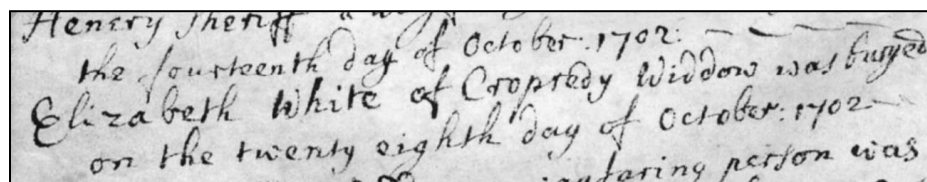 Henery Sheriff a
the fourteenth day of October: 1702:
Elizabeth White of Cropredy Widdow was buryed
on the twenty eighth day of October: 1702
person was